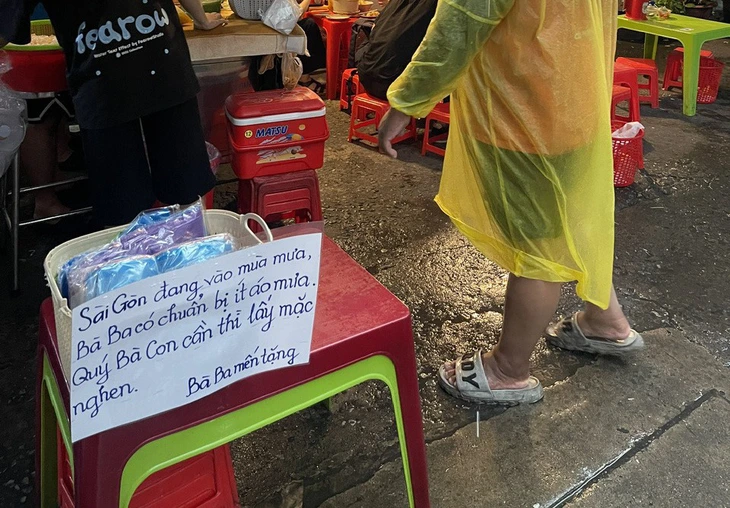 fearow
MATSU
Sài Gòn đang vào mùa mưa,
Bà Ba có chuẩn bị ít áo mưa.
Quý Bà Con cần thì lấy mặc
nghen. Bà Ba mến tặng